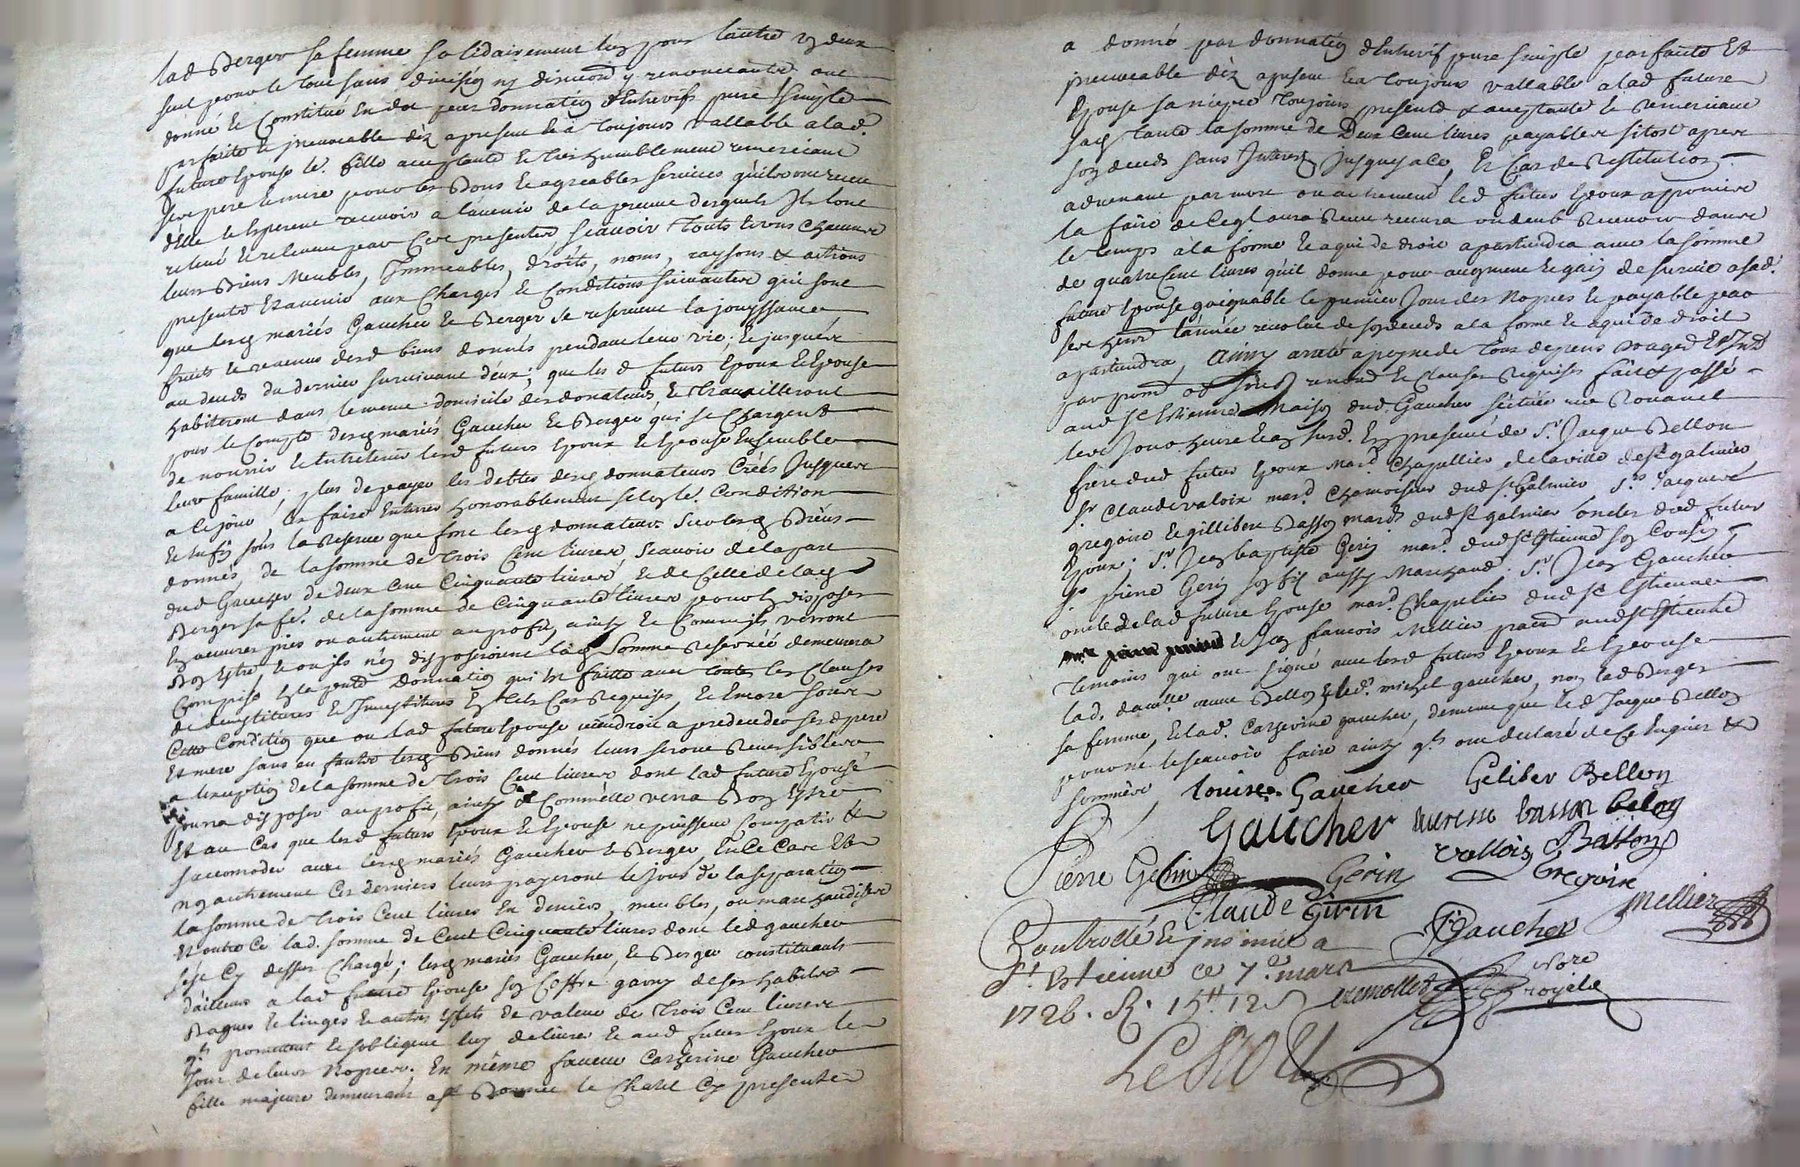 lad Berger sa femme solidairement luy pour lautre un deux
seul pour le tout sans division ny discution y renonceants ont
donné et Constitué en dot par donnation d'Entrevifs pure Simple
parfaite et irrevocable dez apresent et a toujours vallable alad.
future Epouse le. fille acceptante et tres humblement remerciant
ses pere et mere pour les bons et agreables services quils ont receu
d'Elle et Esperent recevoir a lavenir de la preuve desquels Ils lont
relevé et relevent par Ces presentes Scavoir Touts et uns Chacuns
leurs Biens Meubles, Immeubles, droits, noms, raysons et actions
presents et avenir aux Charges et Conditions suivantes qui sont
que lesq mariés Gaucher et Berger Se reservent la jouyssance
fruits et revenus desd biens donnés pendant leur vie, et jusques
au deceds du dernier survivant d'eux; que les d futurs Epoux et Epouse
habiteront dans le meme domicile des donateurs et Travailleront
pour le Compte desq mariés Gaucher et Berger qui se Chargent
de nourrir et Entretenir lesd futurs Epoux et Epouse Ensemble
leur famille, plus de payer les debtes desq donnateurs Créés Jusques
a ce jour, les faire Enterrer honorablement selon le. Condition
et enfin sous la Reserve que font lesq donnateurs sur lesq Biens
donnés, de la somme de Trois Cent livres, Scavoir de la part
dud Gaucher de deux Cent Cinquante livres et de Celle de lad
Berger sa fe. de la somme de Cinquante livres pour En disposer
En œuvres pies ou autrement au profit, ainsy et Comme ils verront
Bon Estre, et ou ils n'En disposeroient la Somme reservée demeurera
Comprise En la pnte donnation qui Est faitte avec toutes les Clauses
de demptitures et Investitures En tels Cas Requises, et Encore sous
Cette Condition que ou lad future Epouse viendroit a predeceder ses pere
et mere sans enfants lesq Biens donnés leurs seront Reversibles
a lexception de la somme de Trois Cent livres dont lad future Epouse
pourra disposer au profit, ainsy et Comme elle verra Bon Estre
Et au Cas que lesd futurs Epoux et Epouse ne puissent Compatir et
saccomoder avec lesq mariés Gaucher et Berger En Ce Cas Et
non autrement Ces derniers leurs payeront le Jour de la Separation
la somme de Trois Cent livres En deniers, meubles, ou marchandises
Et outre Ce lad. somme de Cent Cinquante livres dont led gaucher
sest Cy dessus Chargé; lesq mariés Gaucher, et Berger constituants
d'ailleurs a lad future Epouse son Coffre garny de ses habits
Bagues et linges et autres Effets de valeur de Trois Cent livres
qls promettent et sobligent luy delivrer et aud futur Epoux le
Jour de leurs Nopces. En meme faveur Catherine Gaucher
fille majeure demeurant a Bonnet le Chatel Cy presente
a donné par donnation d'Entrevif pure simple parfaite Et
irrevocable dez apresent et a Toujours vallable a lad future
Epouse sa niepce Toujours presente et acceptante et remerciant
sad Tante la somme de Deux Cent livres payables sitost apres
son deceds sans Interest Jusques a Ce, Et Cas de Restitution
advenant par mort ou autrement led futur Epoux a promis
la faire de Ce ql aura Receu recevra ou deub Recevoir dans
le temps a la forme et a qui de droit apartiendra avec la somme
de quatre Cent livres quil donne pour augment et gain de survie a sad.
future Epouse gaignable le premier Jour des Nopces et payable par
ses hers lannée revolue de son deceds a la forme et a qui de droit
apartiendra, Ainsy areté a peyne de Tous depens domages Et Int
par prom ob soub renond et Clauses Requises fait et passé
aud St Estienne Maison dud Gaucher scituée rue Rouanel
les Jour heure et an susd. En presence de Sr Jacque Bellon
frere dud futur Epoux mard Chapellier de la ville de St galmier
Sr Claude valoix mard. Chamoiseur dud St Galmier Srs Jacques
gregoire et gillibert Basson mards dud St galmier oncles dud futur
Epoux. Sr Jean baptiste Gerin mard. dud St Etienne son Cousin
Sr pierre Gerin son fils aussy Marchand. Sr Jean Gaucher
oncle de lad future Epouse mard. Chapelier dud St Estienne
et Jean francois Mellier patd aud St Etienne
Temoins qui ont signé avec lesd futurs Epoux et Epouse
lad. damlle veuve Bellon et led. michel gaucher, non lad Berger
sa femme, et lad. Catherine gaucher, de meme que led Jacque Bellon
pour ne le scavoir faire ainsy qls ont declaré de Ce Enquis et
sommés,
Louise Gaucher Geliber Bellon
Gaucher basson Belon
Vallois Basson
Pierre Gerin Gerin Gregoire
Claude Girin Mellier
J Gaucher
Controllé et insinué a
St. Estienne ce 7e. mars nore
1726. R. 15tt 12s royale